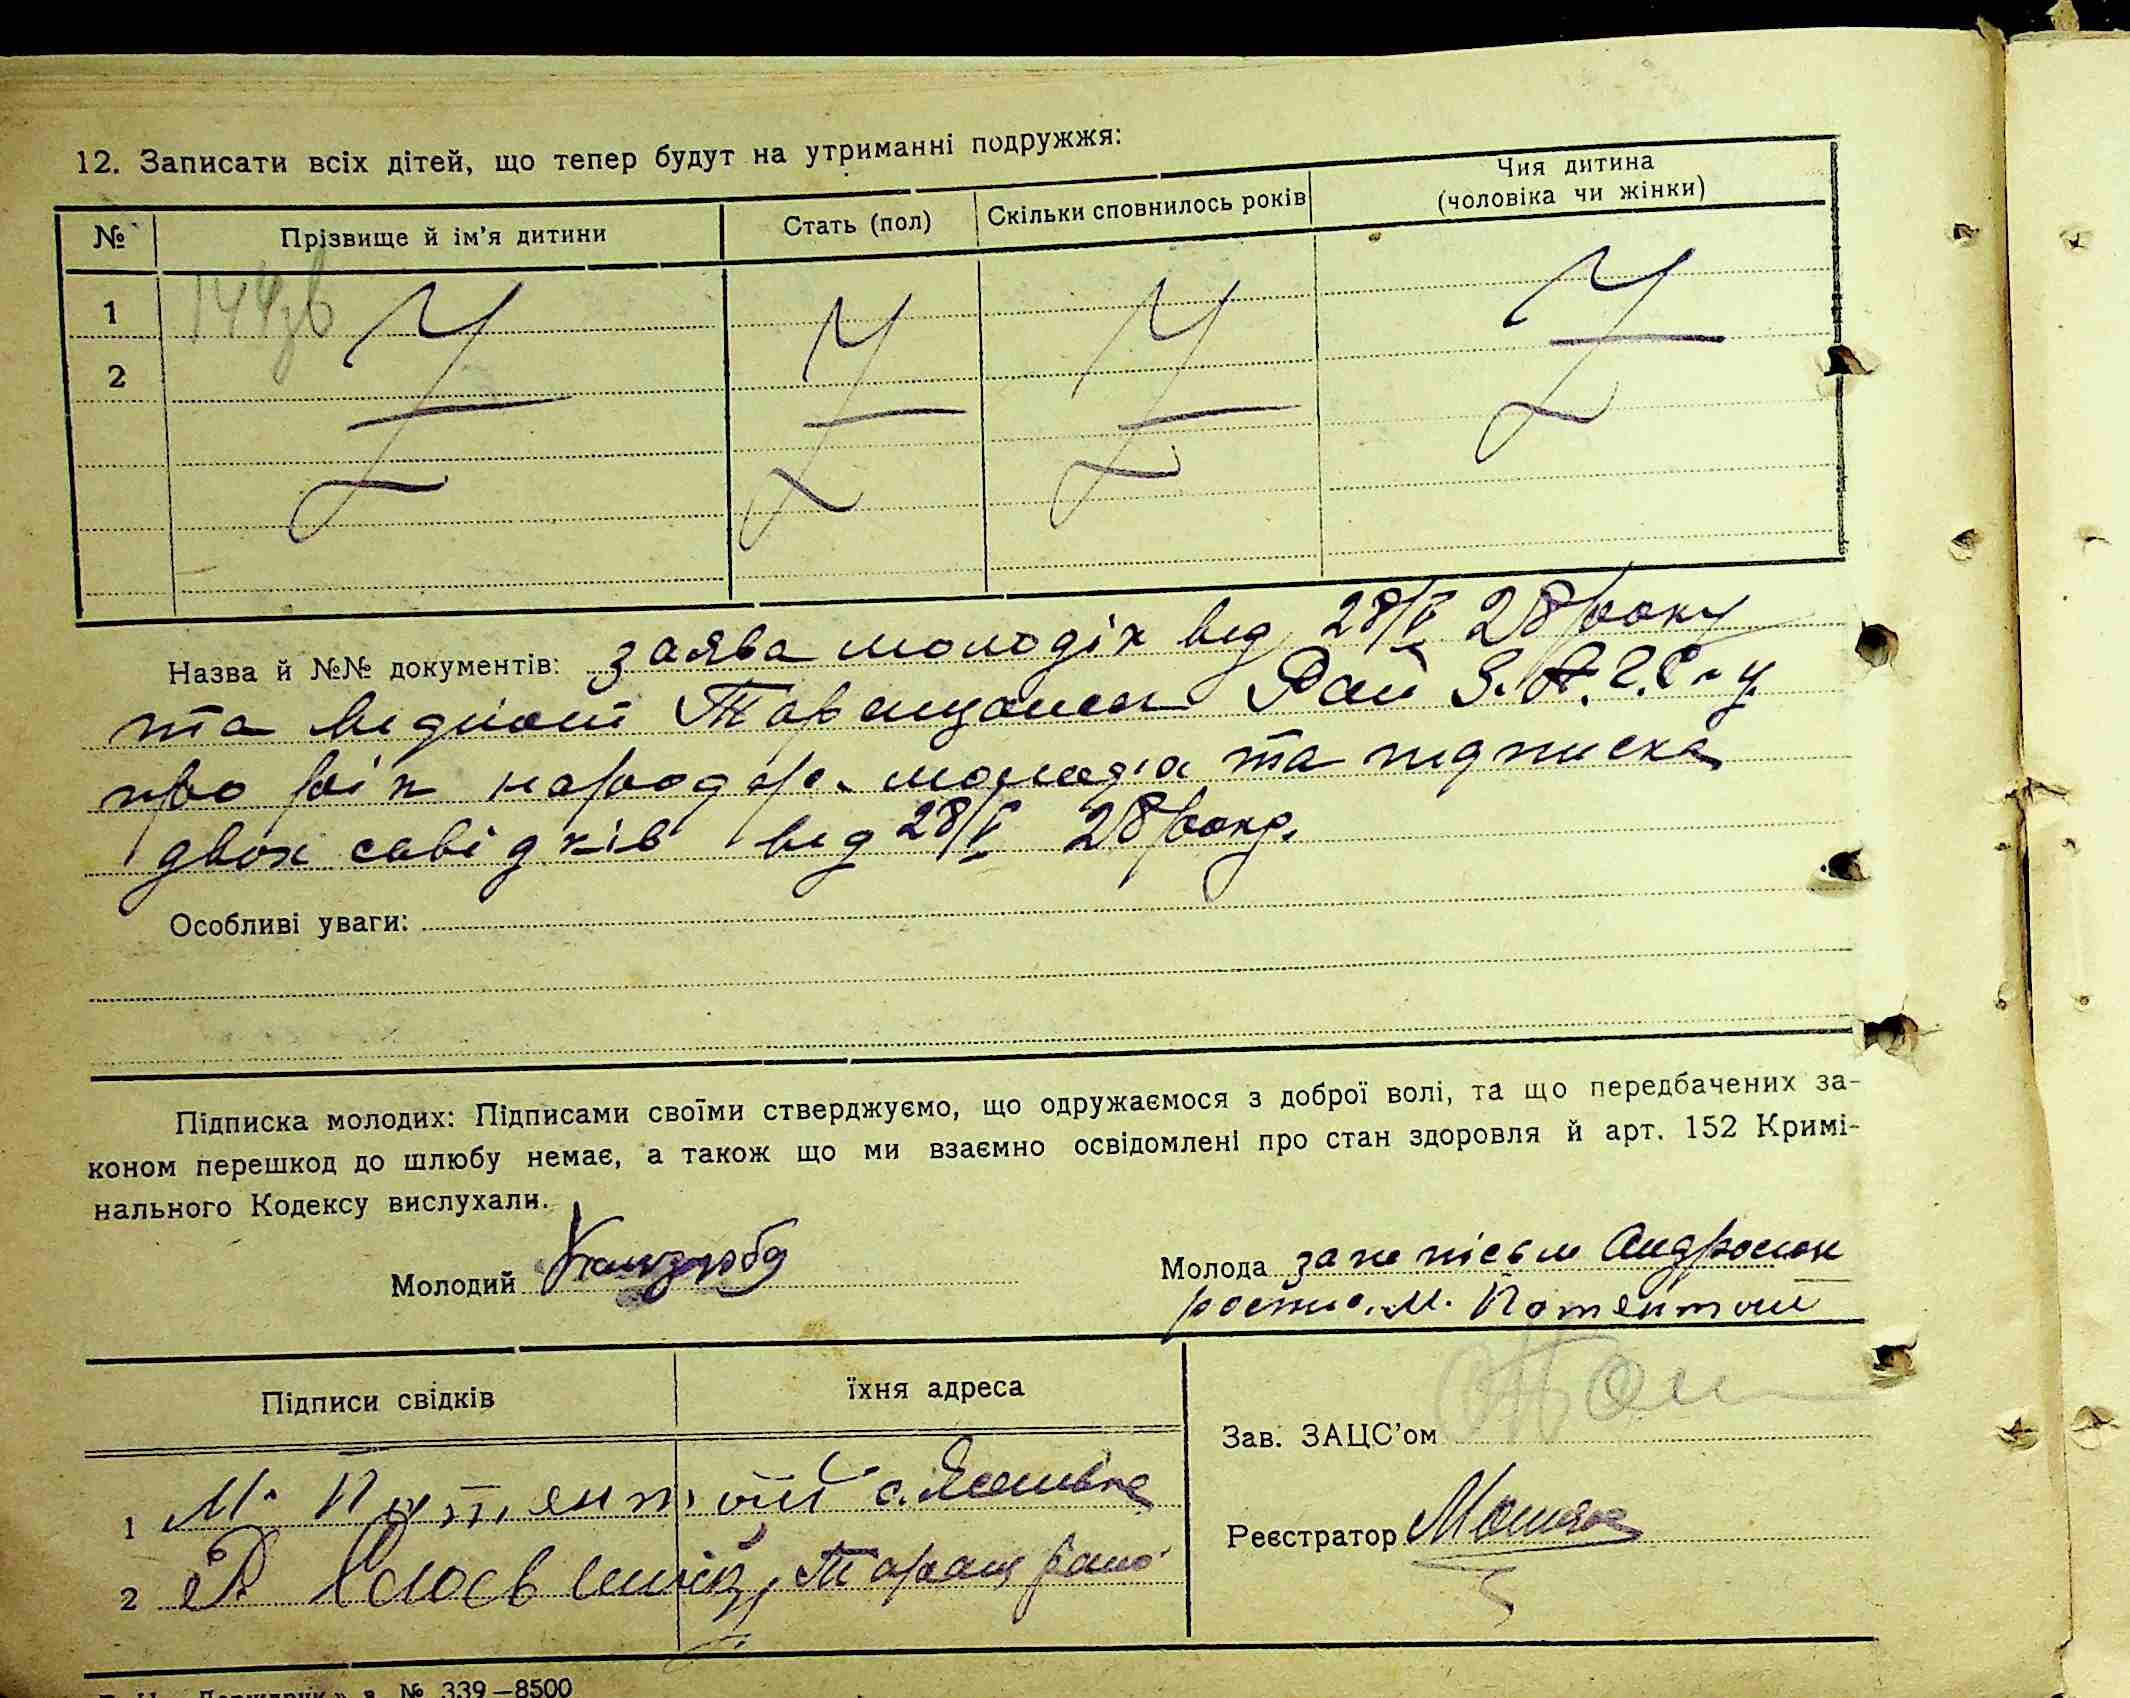 12. Записати всіх дітей, що тепер будут на утриманні подружжя:
№ Прізвище й ім'я дитини Стать (пол) Скільки сповнилось років Чия дитина (чоловіка чи жінки)
1
2
Назва й №№ документів: заява молодіх від 28/V 28 року
та відпомі Таращанск Рай З.А.Г.С-у
про рік народж. молодіх та підписка
двох савідків від 28/V 28 року.
Особливі уваги:
Підписка молодих: Підписами своїми стверджуємо, що одружаємося з доброї волі, та що передбачених за-
коном перешкод до шлюбу немає, а також що ми взаємно освідомлені про стан здоровля й арт. 152 Кримі-
нального Кодексу вислухали.
Молодий
Молода за не пісьм Андросюк
роспис. М.
Підписи свідків їхня адреса
Зав. ЗАЦС'ом
1 М. с. Ясенівка
Реєстратор
2 Таращ району
№ 339—8500